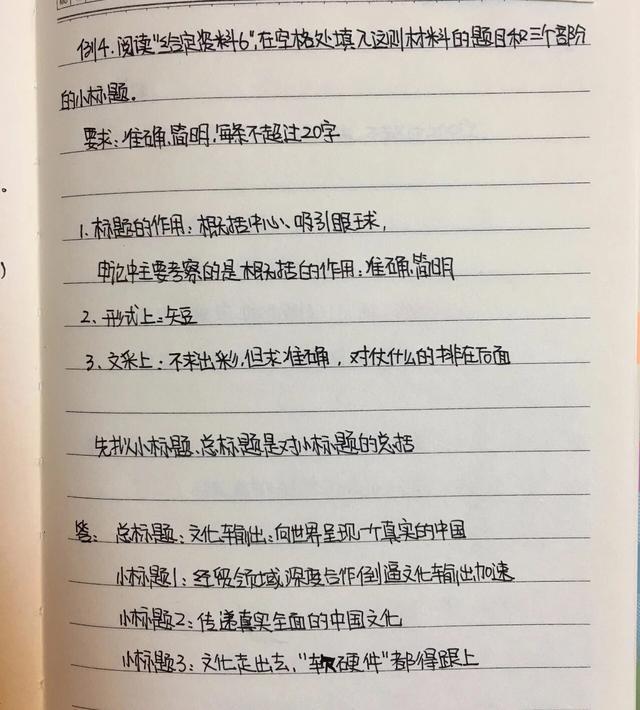 例4.阅读"给定资料6",在空格处填入这则材料的题目和三个部分
的小标题。
要求:准确、简明,每条不超过20字
1.标题的作用:概括中心、吸引眼球,
申论中主要考察的是概括的作用:准确、简明
2、形式上:短
3、文采上:不求出彩,但求准确,对仗什么的排在后面
先拟小标题、总标题是对小标题的总括
答:总标题:文化输出:向世界呈现一个真实的中国
小标题1:经贸领域深度合作倒逼文化输出加速
小标题2:传递真实全面的中国文化
小标题3:文化走出去,"软硬件"都得跟上